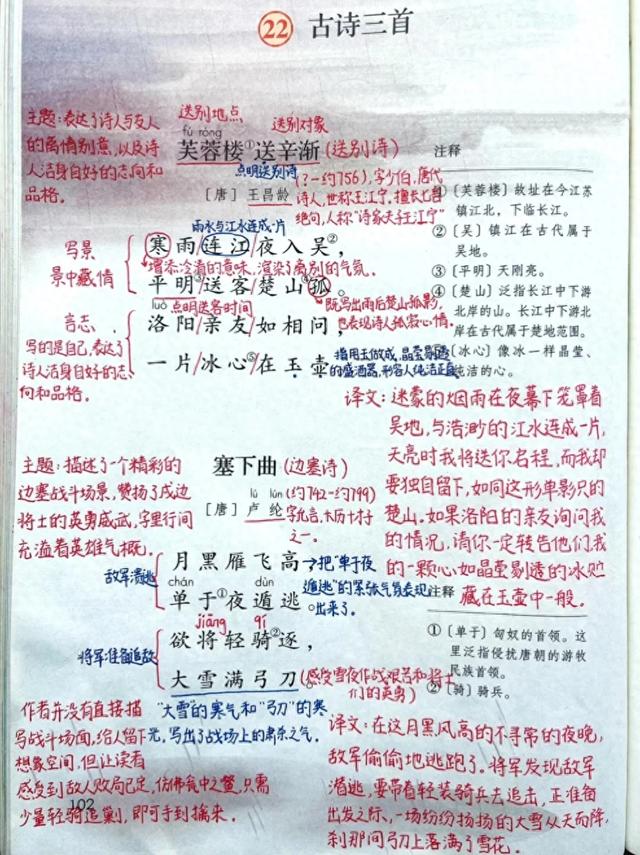 22 古诗三首
主题:表达了诗人与友人
的离情别意,以及诗
人洁身自好的志向和
品格。
送别地点
送别对象
fú róng
芙蓉楼①送辛渐(送别诗)
点明送别诗
[唐] 王昌龄
(?-约756),字少伯,唐代
诗人,世称王江宁,擅长七言
绝句,人称“诗家夫子王江宁”
雨水与江水连成一片
寒雨/连江/夜入吴②,
增添冷清的意味,渲染了离别的气氛。
平明③/送客/楚山④孤。
点明送客时间
既写出雨后楚山孤影,
也表现诗人孤寂心情。
写景
景中藏情
luò
洛阳/亲友/如相问,
一片/冰心⑤/在玉壶。
指用玉做成,晶莹剔透
的盛酒器,形容人纯洁正直
言志
写的是自己,表达了
诗人洁身自好的志
向和品格。
注释
①〔芙蓉楼〕故址在今江苏
镇江北,下临长江。
②〔吴〕镇江在古代属于
吴地。
③〔平明〕天刚亮。
④〔楚山〕泛指长江中下游
北岸的山。长江中下游北
岸在古代属于楚地范围。
〔冰心〕像冰一样晶莹、
纯洁的心。
译文:迷蒙的烟雨在夜幕下笼罩着
吴地,与浩渺的江水连成一片,
天亮时我将送你启程,而我却
要独自留下,如同这形单影只的
楚山。如果洛阳的亲友询问我
的情况,请你一定转告他们我
的一颗心如晶莹剔透的冰贮
藏在玉壶中一般。
主题:描述了一个精彩的
边塞战斗场景,赞扬了戍边
将士的英勇威武,字里行间
充溢着英雄气概。
塞下曲(边塞诗)
lú lún
[唐] 卢纶
(约742-约799)
字允言,大历十才子
之一。
月黑雁飞高,
chán dùn
单于①夜遁逃。
把“单于夜
遁逃”的紧张气氛表现
出来了。
敌军溃逃
jiāng qí
欲将轻骑②逐,
大雪满弓刀。
(感受雪夜作战艰苦和将士
们的英勇)
将军准备追敌
“大雪”的寒气和“弓刀”的寒
光,写出了战场上的肃杀之气。
注释
①〔单于〕匈奴的首领。这
里泛指侵扰唐朝的游牧
民族首领。
②〔骑〕骑兵。
作者并没有直接描
写战斗场面,给人留下
想象空间。但让读者
感受到敌人败局已定,仿佛瓮中之鳖,只需
少量轻骑追剿,即可手到擒来。
译文:在这月黑风高的不寻常的夜晚,
敌军偷偷地逃跑了。将军发现敌军
潜逃,要带着轻装骑兵去追击,正准备
出发之际,一场纷纷扬扬的大雪从天而降,
刹那间弓刀上落满了雪花。
102